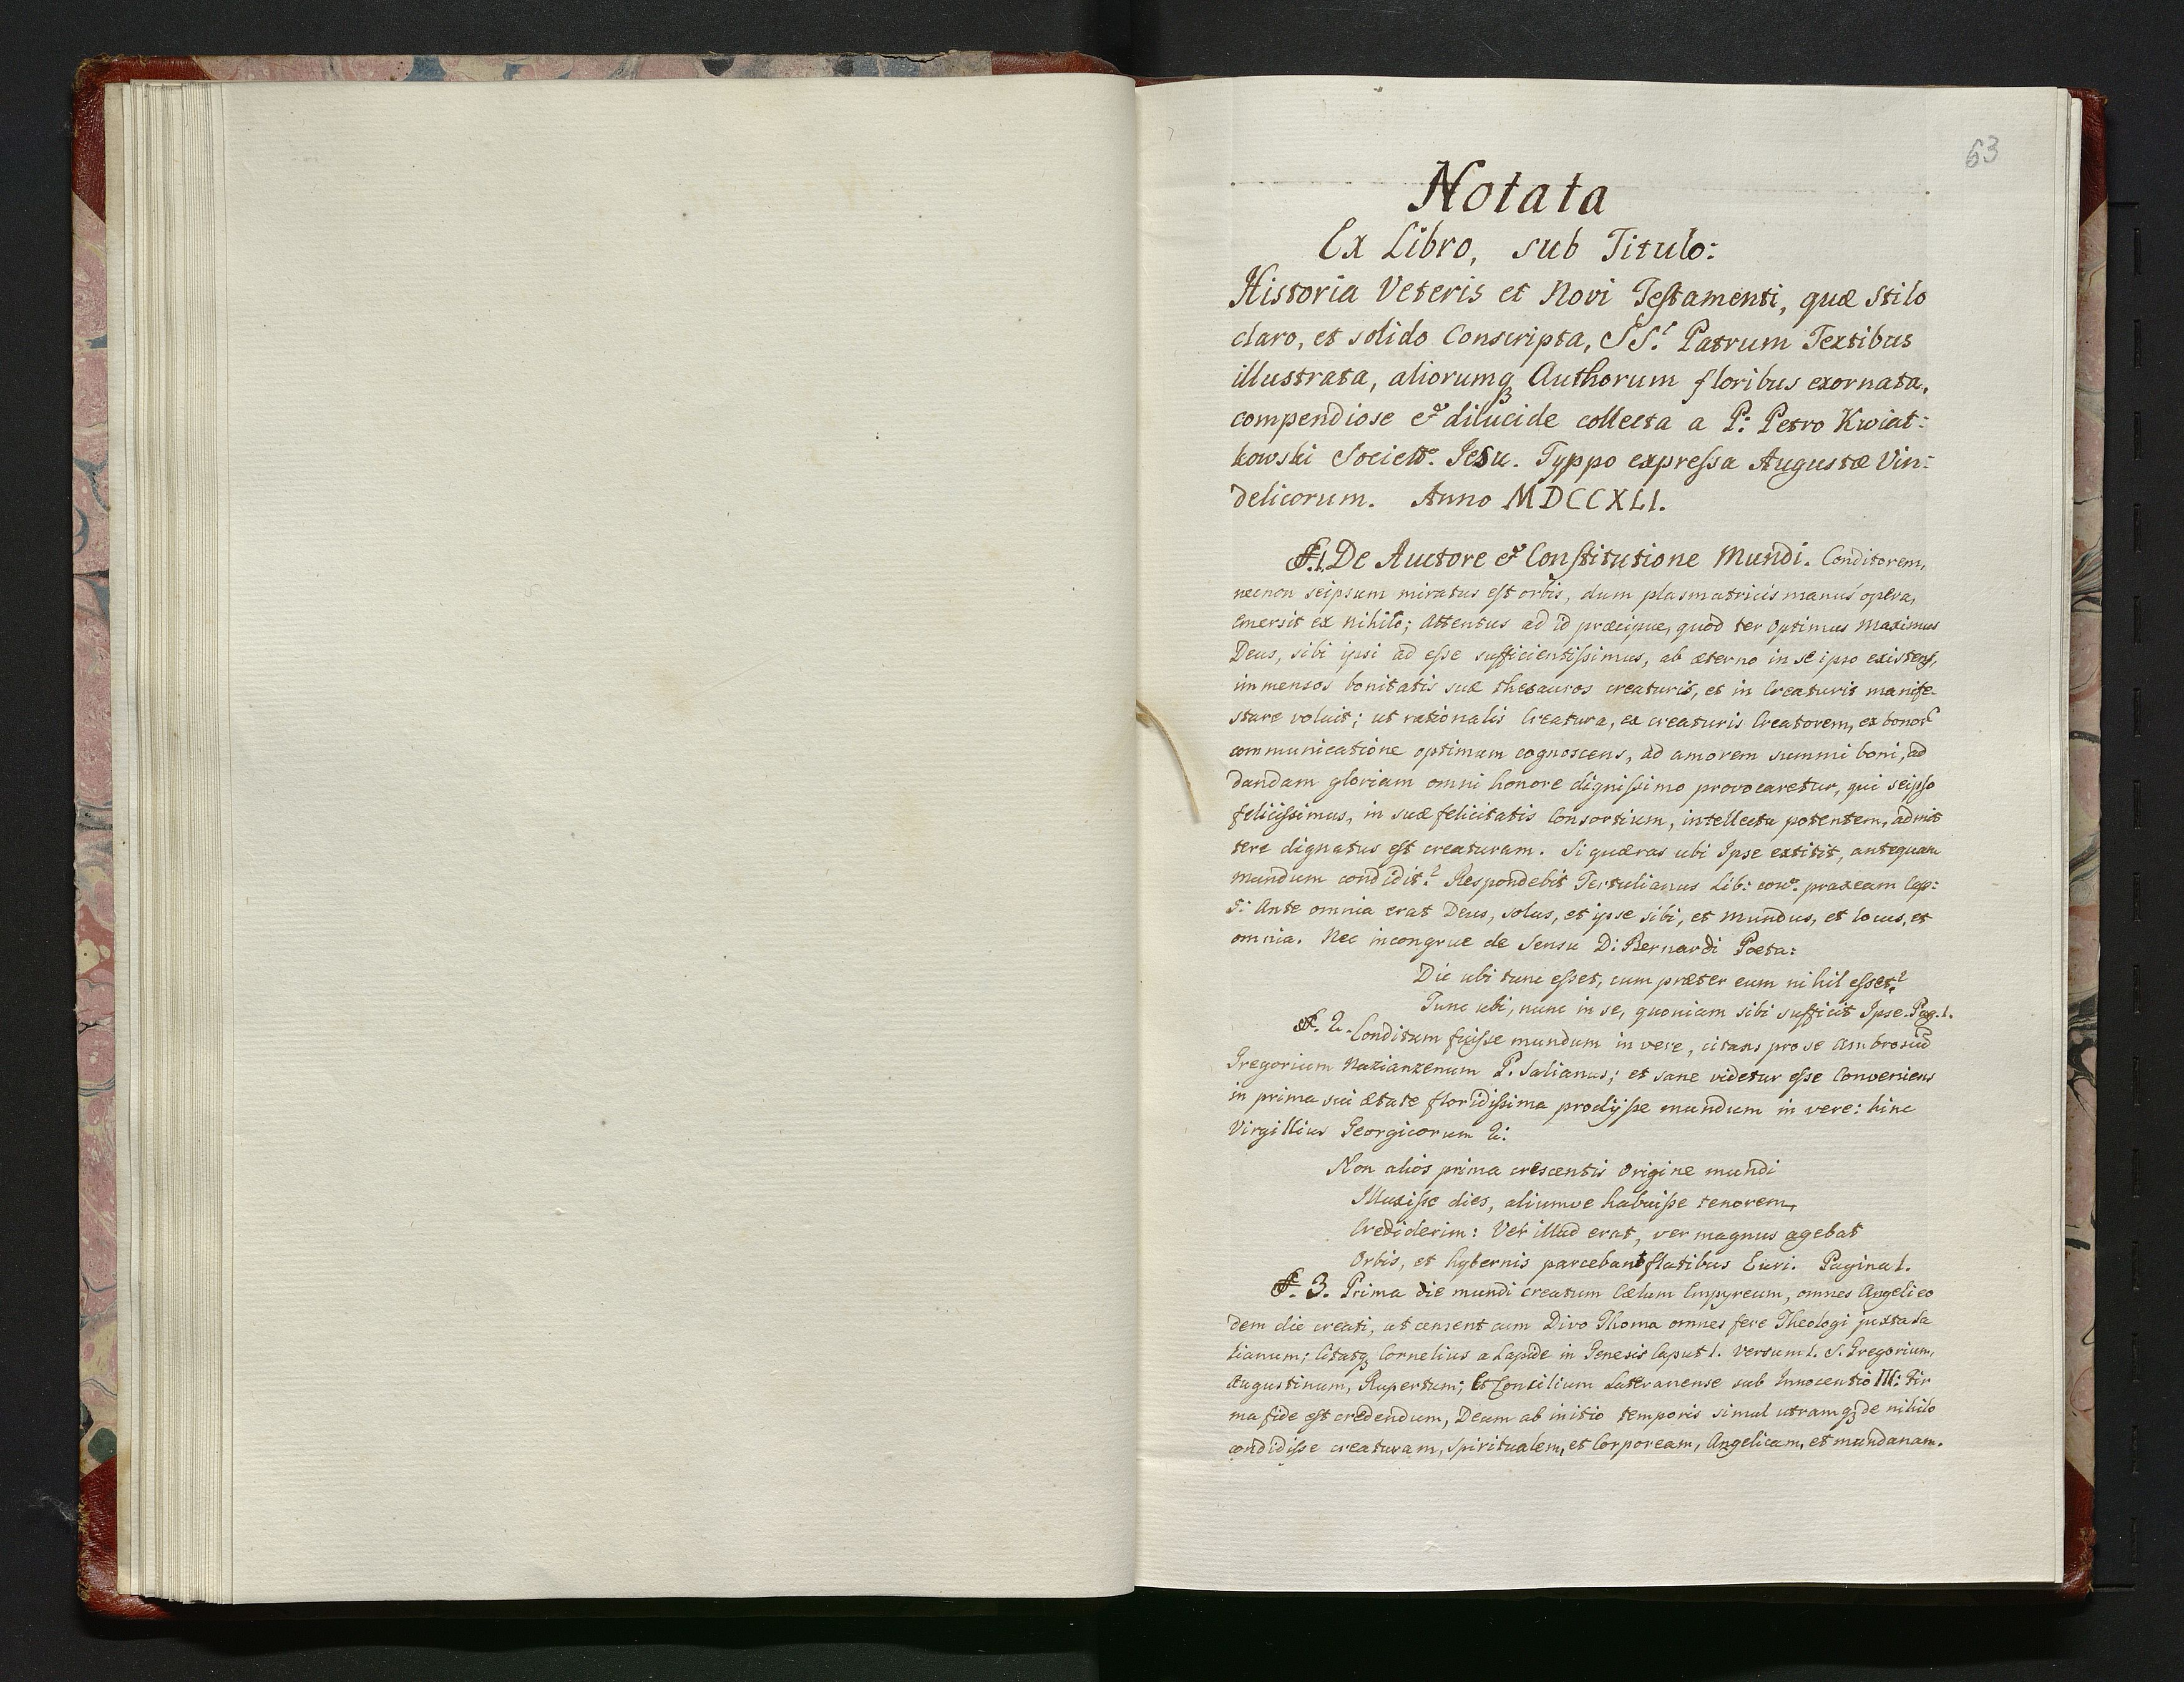 63
Notata
Ex Libro, sub Titulo:
Historia Veteris et Novi Testamenti, quæ Stilo
claro, et solido Conscripta, SS. Patrum Textibus
illustrata, aliorumq Authorum floribus exornata,
compendiose & dilucide collecta a P: Petro Kwiat:
kowski Societt. Jesu. Typpo expressa Augustæ Vin:
delicorum. Anno MDCCXLI.
§.1. De Auctore & Constitutione Mundi. Conditorem,
necnon seipsum miratus est orbis, dum plasmatricis manus opera,
emersit ex nihilo; Attentus ad id præcipue, quod ter Optimus Maximus
Deus, sibi ipsi ad esse sufficientissimus, ab æterno in se ipso existens,
immensos bonitatis suæ thesauros creaturis, et in Creaturis manife-
stare voluit; ut rationalis Creatura, ex creaturis Creatorem, ex bonor
communicatione optimum cognoscens, ad amorem summi boni, ad
dandam gloriam omni honore dignissimo provocaretur, qui seipso
felicissimus, in suæ felicitatis Consortium, intellectu potentem, admit
tere dignatus est creaturam. Si quæras ubi Ipse extitit, antequam
mundum condidit? Respondebit Tertulianus Lib: con. praxeam Cap:
5: Ante omnia erat Deus, solus, et ipse sibi, et mundus, et locus, et
omnia. Nec incongrue de Sensu D: Bernardi Poeta:
Dic ubi tunc esset, cum præter eum nihil esset?
Tunc ubi, nunc in se, quoniam sibi sufficit Ipse. Pag. 1.
§. 2. Conditum fuisse mundum in vere, citans pro se Ambrosiū
Gregorium Nazianzenum P. Salianus; et sane videtur esse Conveniens
in prima sui ætate floridissima prodijsse mundum in vere: hinc
Virgillius Georgicorum 2:
Non alios prima crescentis Origine mundi
Illuxisse dies, aliumve habuisse tenorem,
Crediderim: Ver illud erat, ver magnus agebat
Orbis, et hybernis parcebant flatibus Euri. Pagina 1.
§. 3. Prima die mundi creatum Cælum Empyreum, omnes Angeli eo
dem die creati, ut censent cum Divo Thoma omnes fere Theologi juxta Sa
lianum; Citatq Cornelius a Lapide in Genesis Caput 1. Versum 1. S. Gregorium,
Augustinum, Rupertum; Et Concilium Lateranense sub Innocentio III: Fir
ma fide est credendum, Deum ab initio temporis simul utramq de nihilo
condidisse creaturam, spiritualem, et Corpoream, Angelicam, et mundanam.